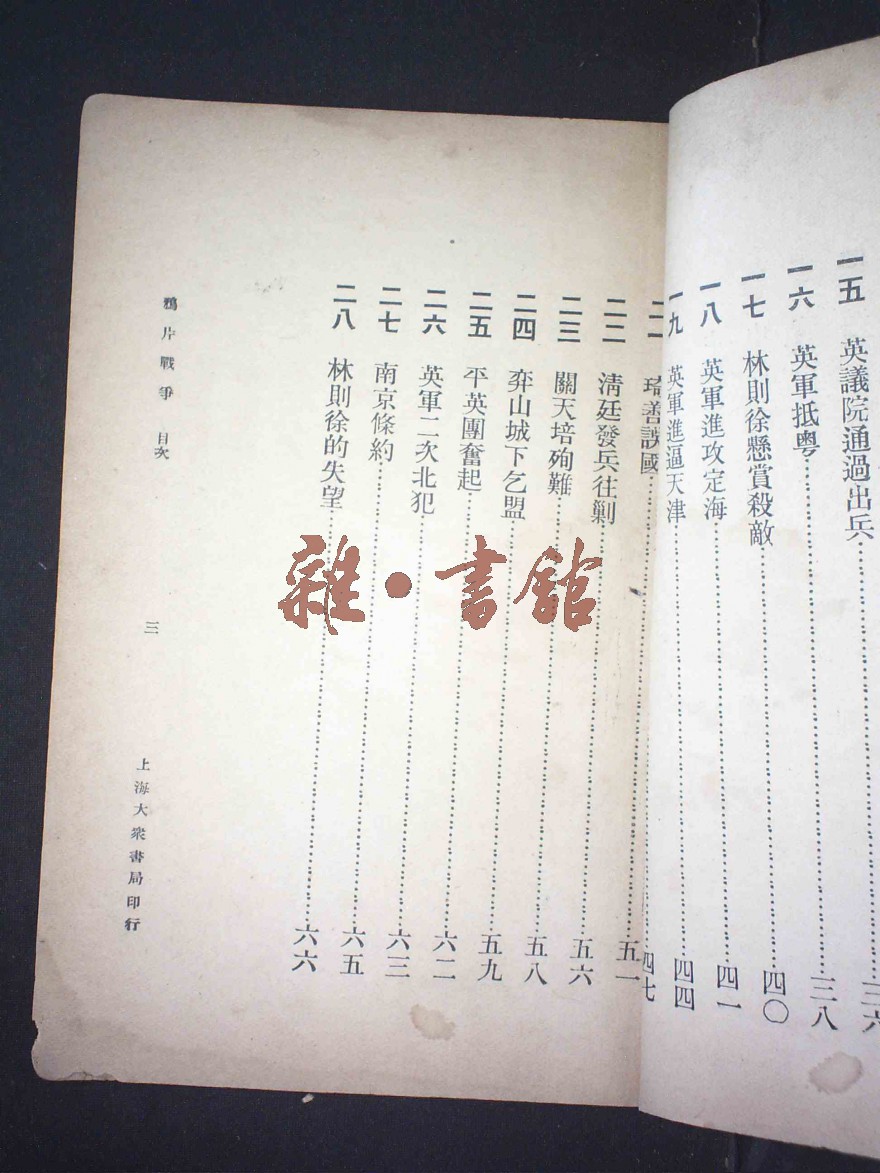 一五 英議院通過出兵……三六
一六 英軍抵粤……三八
一七 林則徐懸賞殺敵……四〇
一八 英軍進攻定海……四一
一九 英軍進逼天津……四四
四七
二一 琦善誤國……五一
二二 清廷發兵往剿……五六
二三 關天培殉難……五八
二四 弈山城下乞盟……五九
二五 平英團奮起……六二
二六 英軍二次北犯……六三
二七 南京條約……六五
二八 林則徐的失望……六六
鴉片戰爭 目次 三 上海大衆書局印行
雜·書館